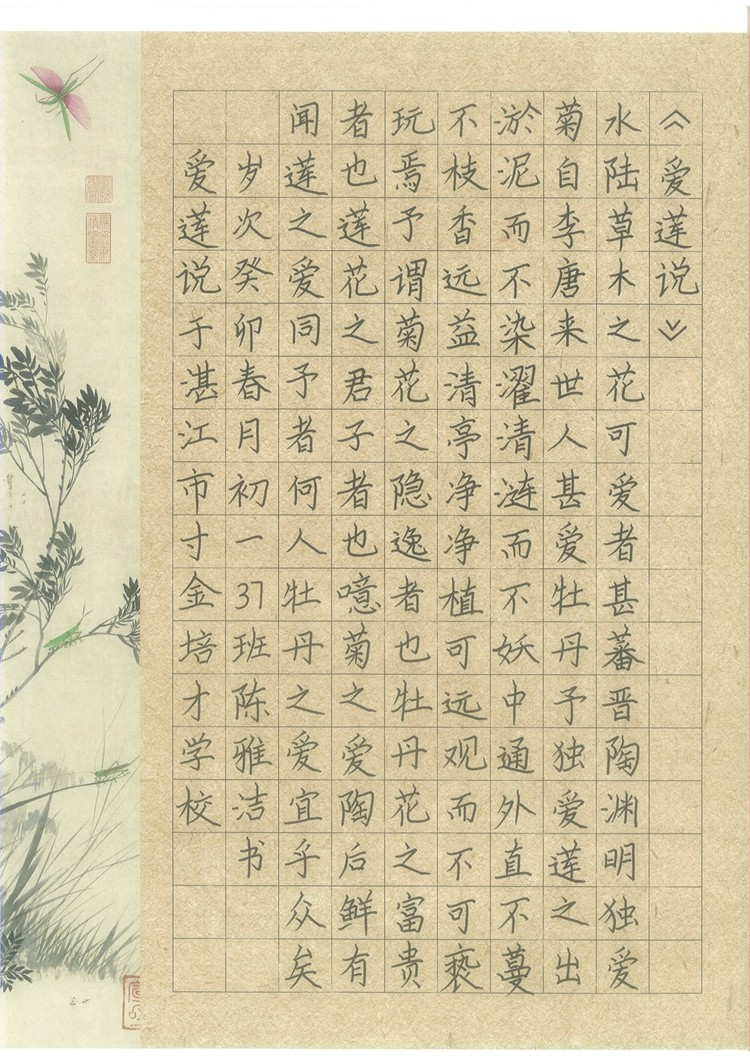 《爱莲说》
水陆草木之花可爱者甚蕃晋陶渊明独爱
菊自李唐来世人甚爱牡丹予独爱莲之出
淤泥而不染濯清涟而不妖中通外直不蔓
不枝香远益清亭净净植可远观而不可亵
玩焉予谓菊花之隐逸者也牡丹花之富贵
者也莲花之君子者也噫菊之爱陶后鲜有
闻莲之爱同予者何人牡丹之爱宜乎众矣
岁次癸卯春月初一37班陈雅洁书
爱莲说于湛江市寸金培才学校